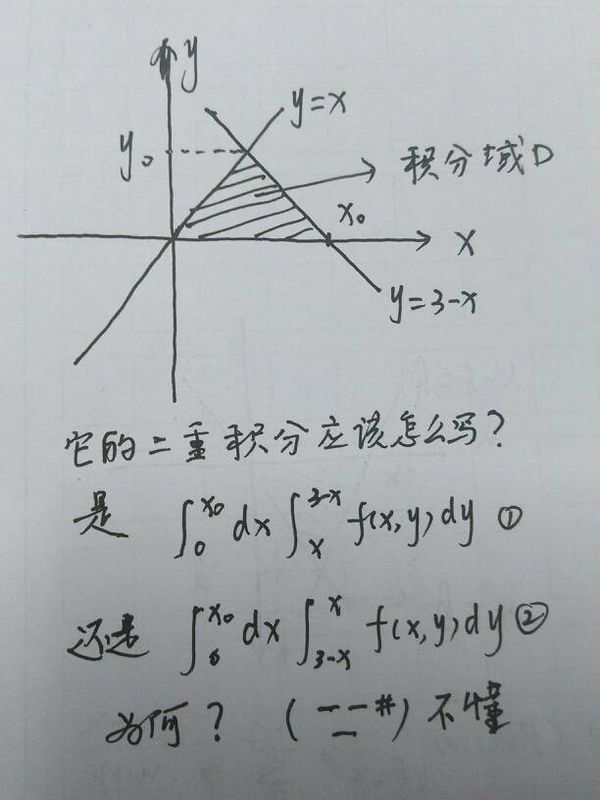 y
y=x
y₀
积分域D
x₀
x
y=3-x
它的二重积分应该怎么写?
是 ∫₀^{x₀} dx ∫ₓ^{3-x} f(x,y)dy ①
还是 ∫₀^{x₀} dx ∫_{3-x}^{x} f(x,y)dy ②
为何? (一一#) 不懂